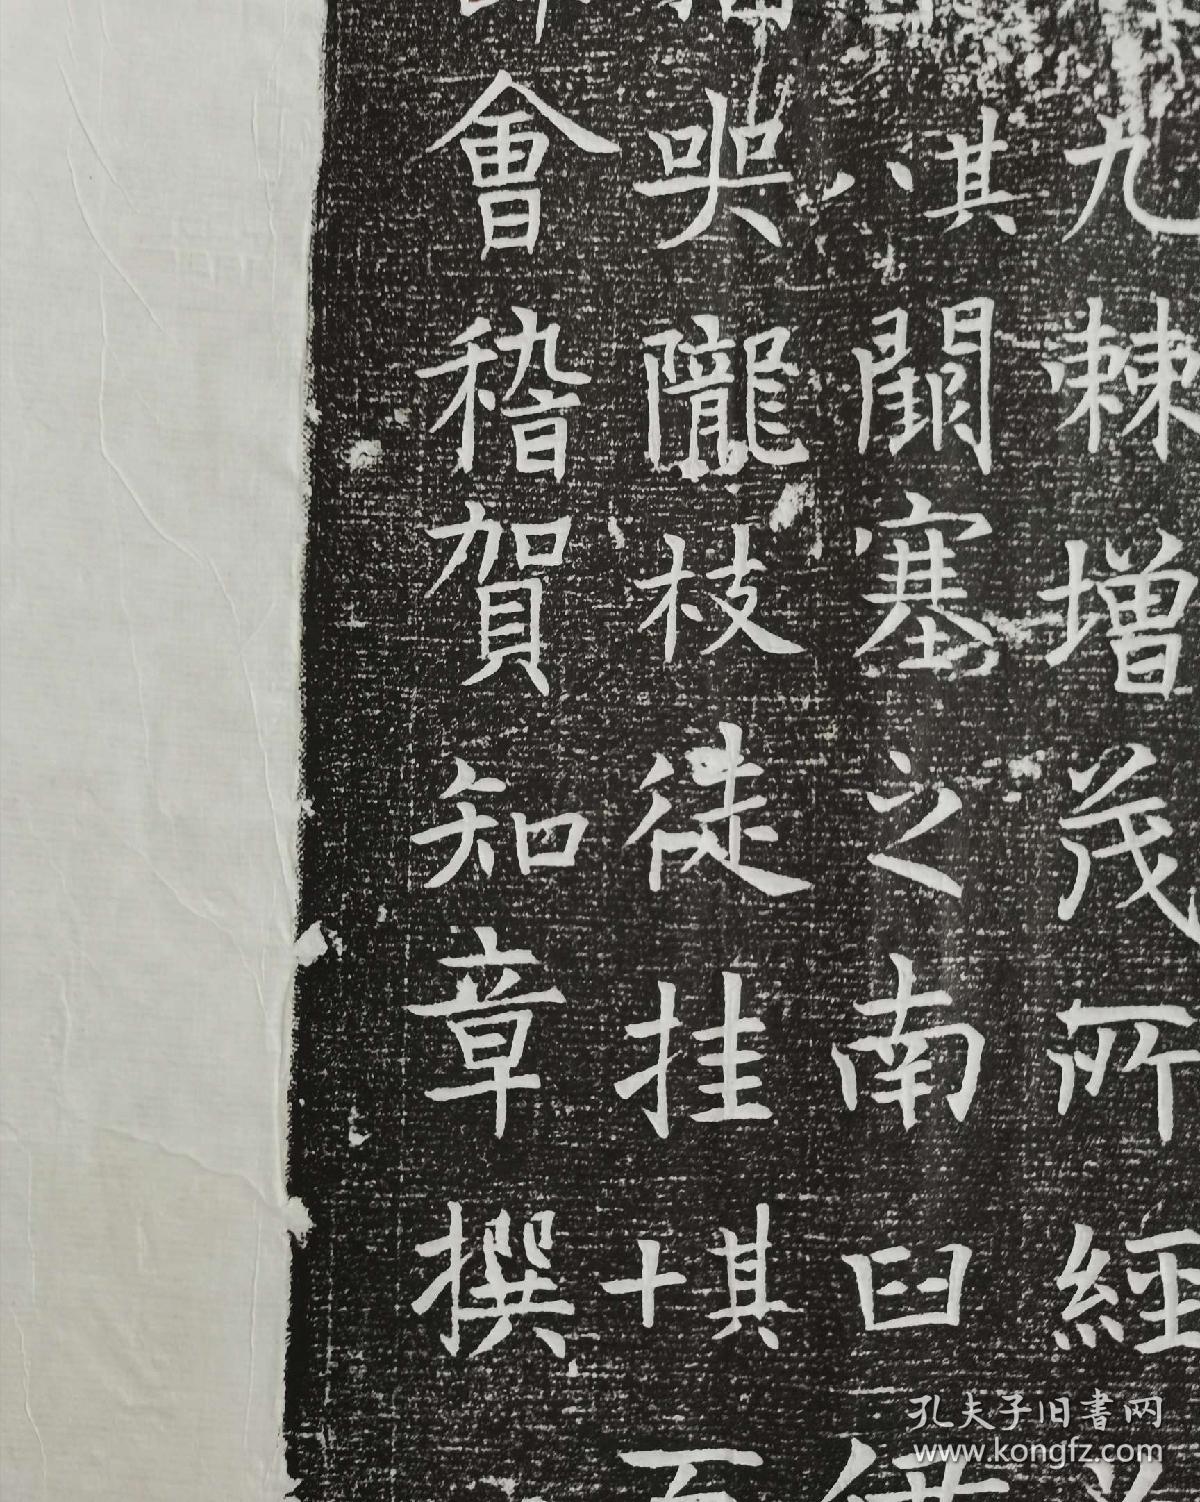 九棘增茂所經
其八闕塞之南臼
哭隴枝徒挂其十百
會稽賀知章撰
孔夫子旧書网
www.kongfz.com